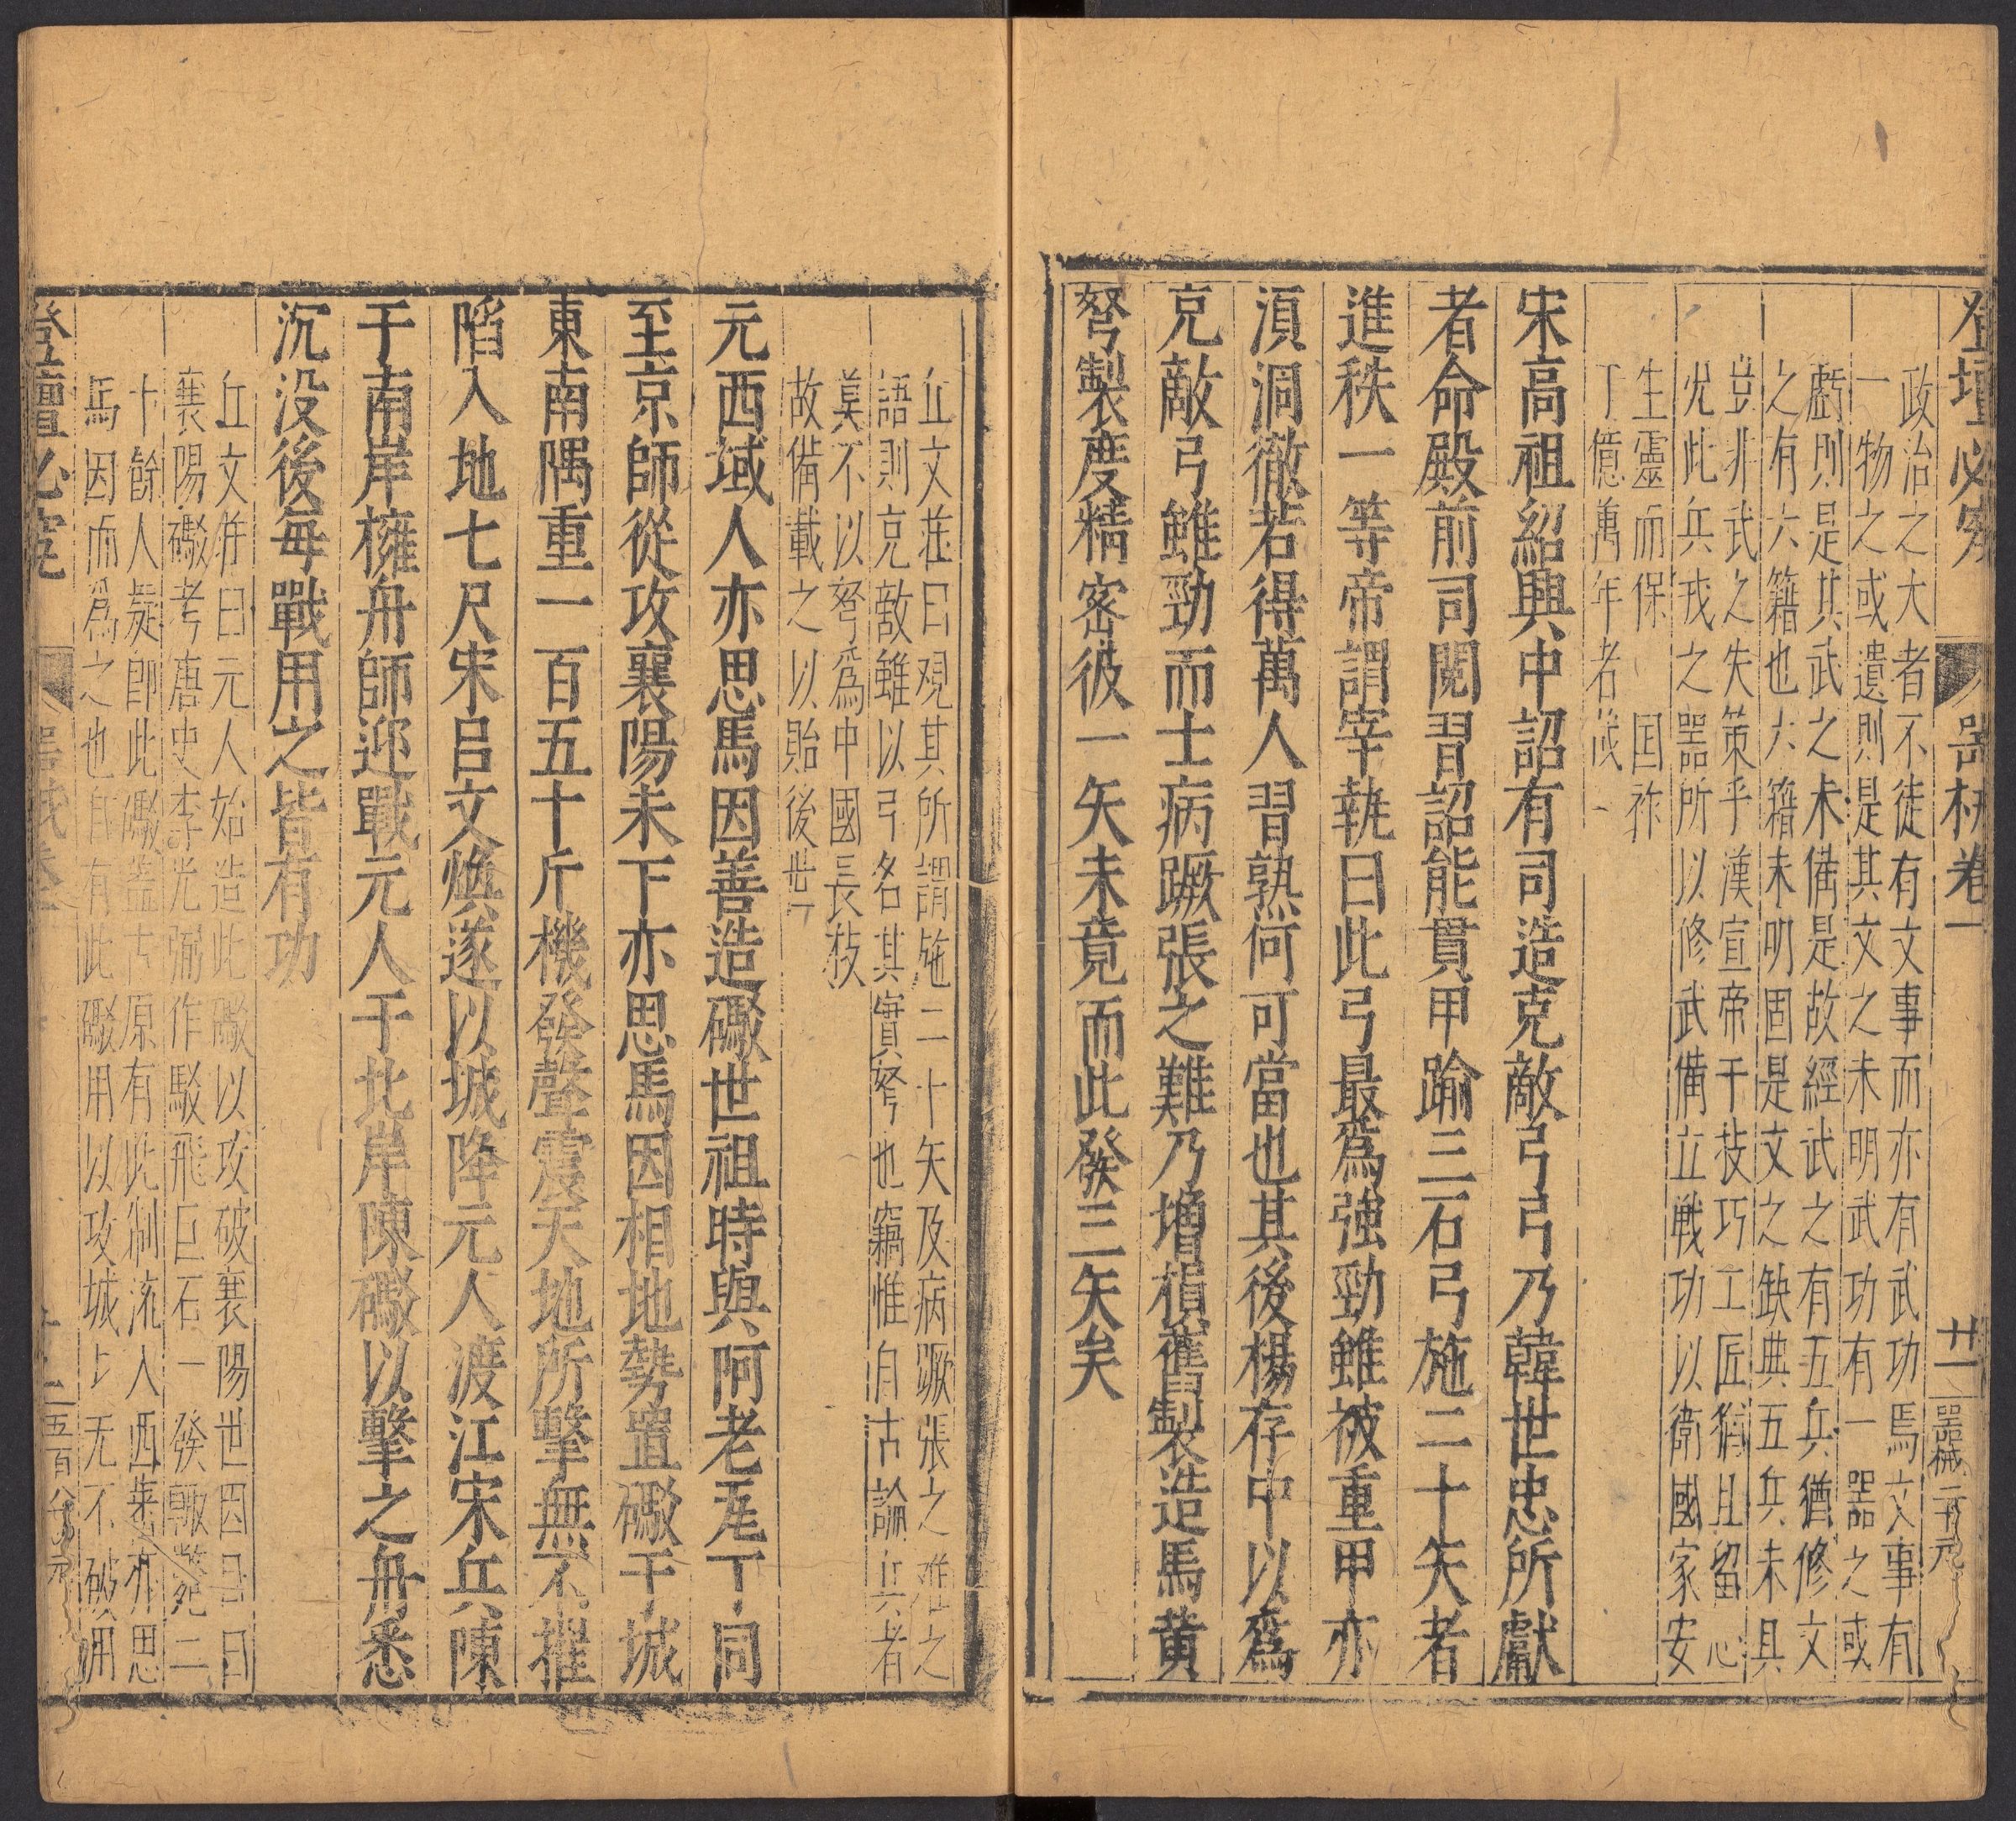 登壇必究 器械卷一 廿一 器械 二十元
政治之大者不徒有文事而亦有武功焉文事有
一物之或遺則是其文之未明武功有一器之或
虧則是其武之未備是故經武之有五兵猶修文
之有六籍也六籍未明固是文之缺典五兵未具
豈非武之失策乎漢宣帝于技巧工匠猶且留心
況此兵戎之器所以修武備立戦功以衛國家安
生靈而保 国祚
于億萬年者哉
宋高祖紹興中詔有司造克敵弓弓乃韓世忠所獻
者命殿前司閱習詔能貫甲踰三石弓施二十矢者
進秩一等帝謂宰執曰此弓最爲強勁雖被重甲亦
湏洞徹若得萬人習熟何可當也其後楊存中以爲
克敵弓雖勁而士病蹶張之難乃增損舊製造馬黄
弩製度精密彼一矢未竟而此發三矢矣
丘文莊曰观其所謂施二十矢及病蹶張之难之
語則克敵雖以弓名其實弩也竊惟自古論兵者
莫不以弩爲中國長技
故備載之以貽後世
元西域人亦思馬因善造礮世祖時與阿老瓦丁同
至京師從攻襄陽未下亦思馬因相地勢置礮于城
東南隅重一百五十斤機發聲震天地所擊無不摧
陷入地七尺宋吕文煥遂以城降元人渡江宋兵陳
于南岸擁舟師迎戰元人于北岸陳礮以擊之舟悉
沉没後每戰用之皆有功
丘文莊曰元人始造此礮以攻破襄陽世因目曰
襄陽礮考唐史李光弼作駁飛巨石一發輙斃二
十餘人疑即此礮盖古原有此制流入西域亦思
馬因而爲之也自有此礮用以攻城城无不破用
登壇必究 器械卷一 五百八元